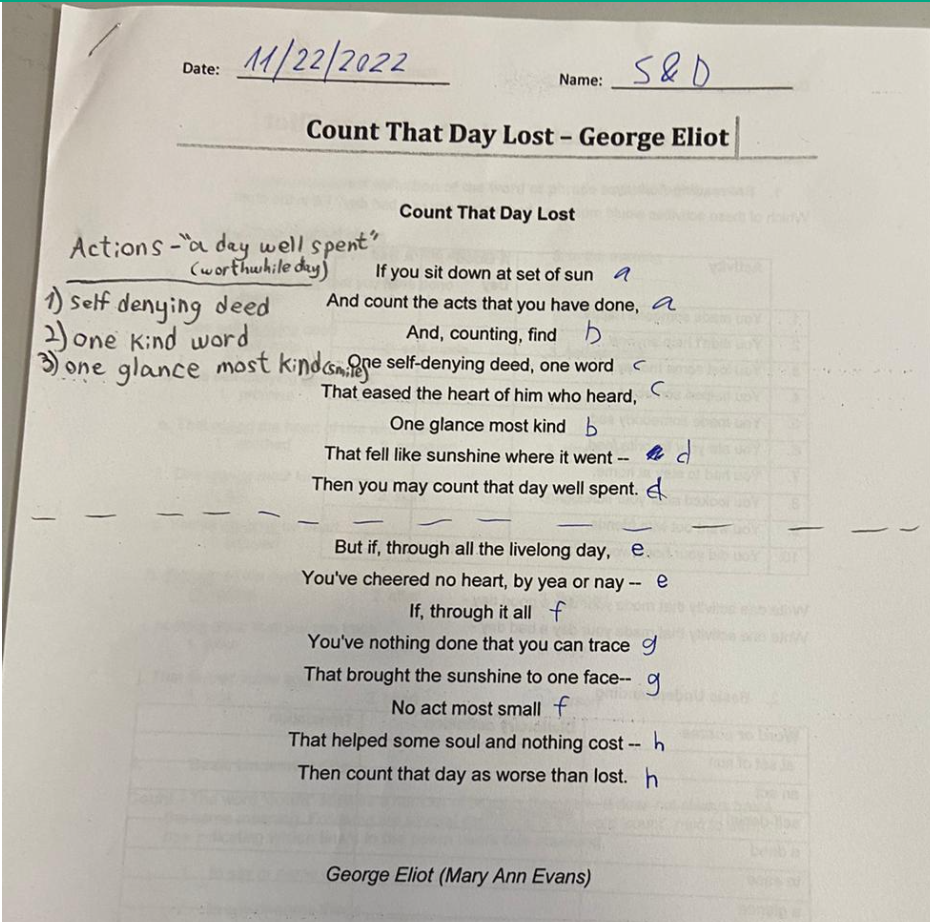 Date: 11/22/2022 Name: S & D
Count That Day Lost – George Eliot
Count That Day Lost
Actions - "a day well spent"
(worthwhile day)
1) self denying deed
2) one kind word
3) one glance most kind (smile)
If you sit down at set of sun a
And count the acts that you have done, a
And, counting, find b
One self-denying deed, one word c
That eased the heart of him who heard, c
One glance most kind b
That fell like sunshine where it went -- d
Then you may count that day well spent. d
But if, through all the livelong day, e
You've cheered no heart, by yea or nay -- e
If, through it all f
You've nothing done that you can trace g
That brought the sunshine to one face-- g
No act most small f
That helped some soul and nothing cost -- h
Then count that day as worse than lost. h
George Eliot (Mary Ann Evans)